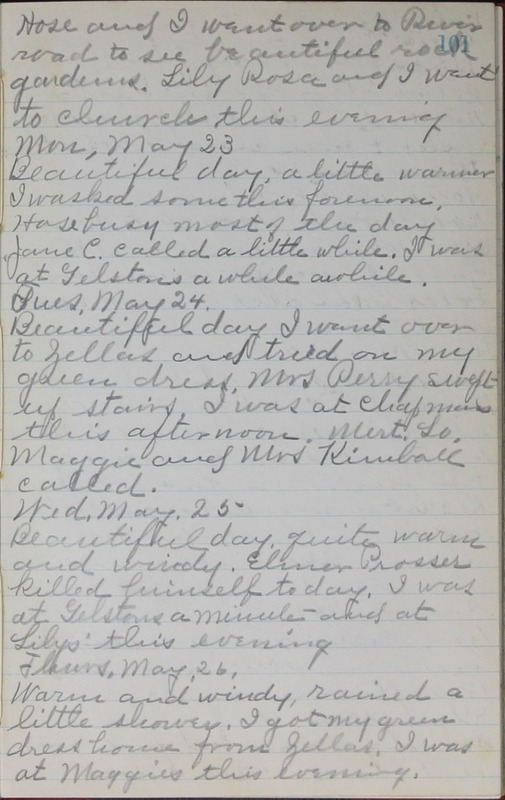 Hose and I went over to River
101
road to see beautiful rock
gardens. Lily Rosa and I went
to church this evening
Mon, May 23
Beautiful day, a little warmer
I washed some this forenoon.
Hose busy most of the day
Jane C. called a little while. I was
at Gelstons a while awhile.
Tues, May 24.
Beautiful day I went over
to Zellas and tried on my
green dress, Mrs Perry swept
up stairs. I was at Chapmans
this afternoon. Mert. Lo.
Maggie and Mrs Kimball
called.
Wed, May. 25
Beautiful day, quite warm
and windy. Elmer Prosser
killed himself today. I was
at Gelstons a minute and at
Lilys' this evening
Thurs, May, 26.
Warm and windy, rained a
little shower. I got my green
dress home from Zellas. I was
at Maggies this evening.